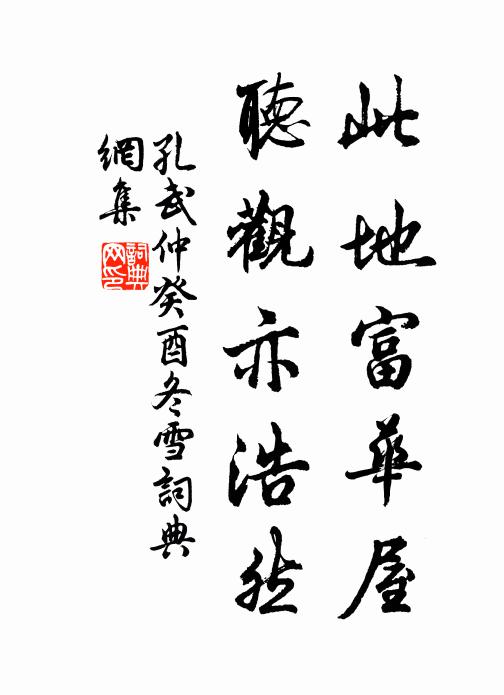 此地富華屋
聽觀亦浩然
孔武仲癸酉冬雪詞典
網集
詞典
网印